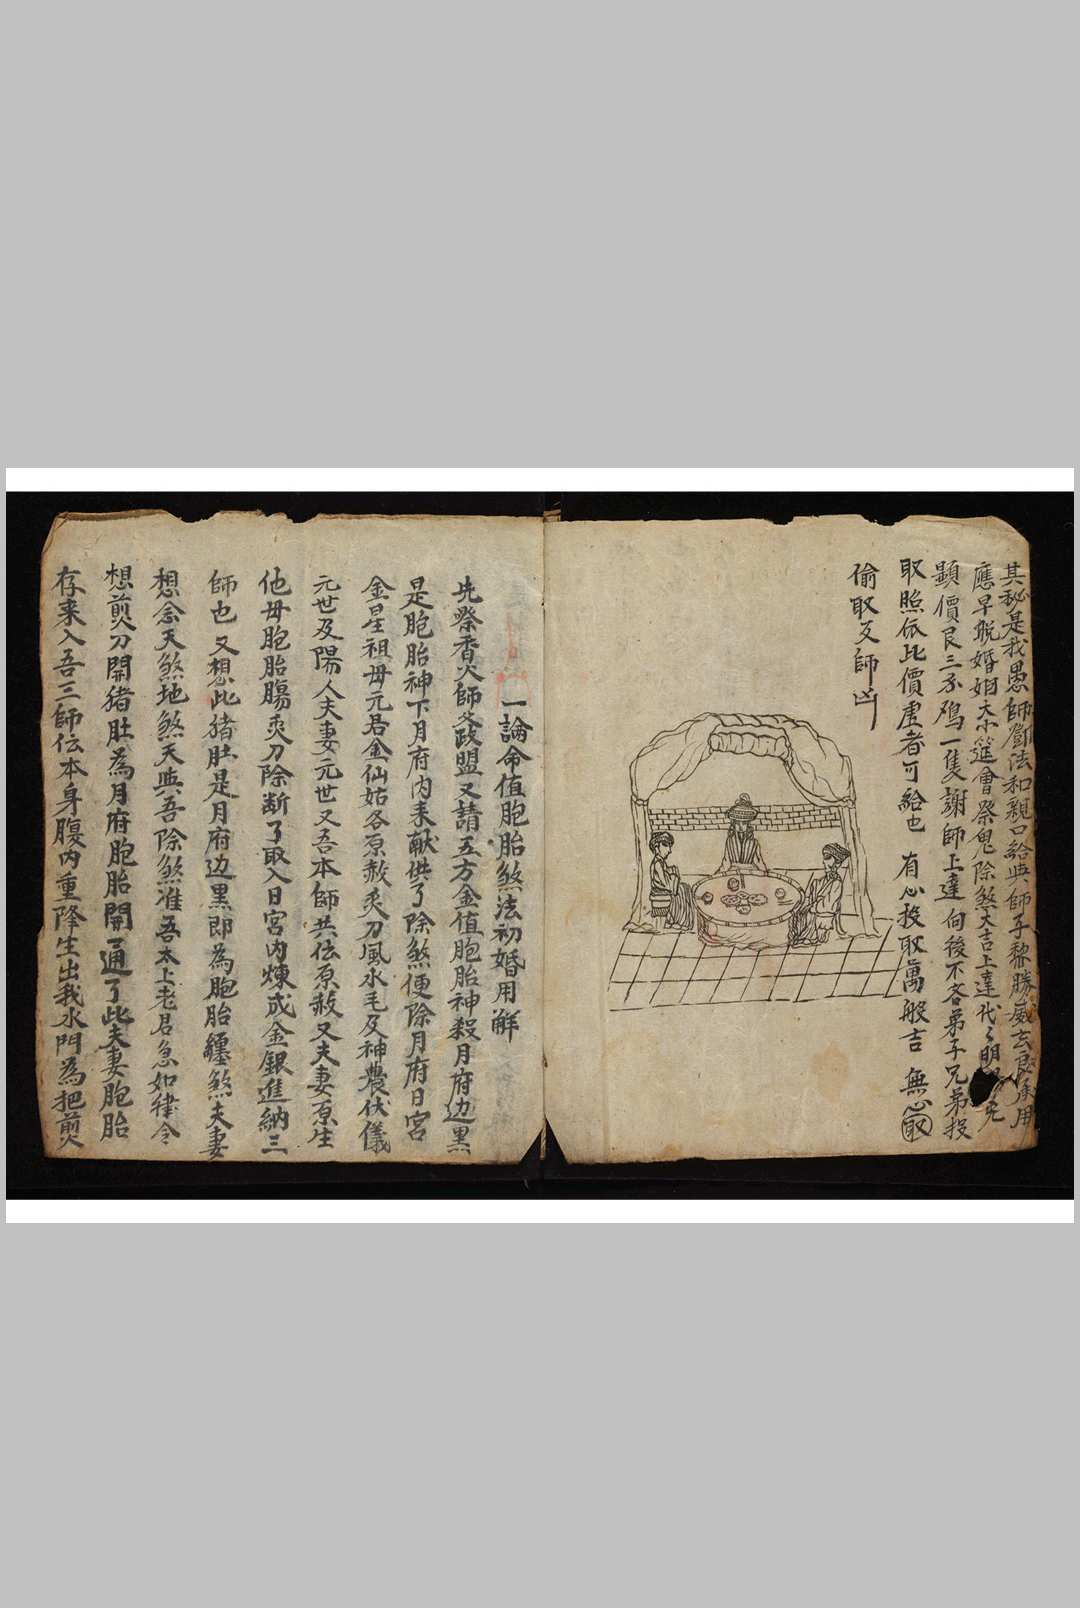 其秘是我愚師鄧法和親口給與師子黎勝威玄良承用
應早脫婚姻大小筵會祭鬼除煞大吉上達代々明
顯價艮三不鴻一隻謝師上達向後不吝弟子兄弟投
取照依比價重者可給也 有心投取萬般吉 無心取
偷取反師凶
一論命值胞胎煞法初婚用觧
先祭香火師父啟盟又請五方金值胞胎神殺月府边黒
是胞胎神下月府内来献供了除煞便除月府日宮
金星祖母元君金仙姑各原赦炙刀風水毛及神農伏儀
元世及陽人夫妻元世又吾本師共伝原赦又夫妻原生
他毋胞胎腸炙刀除断了取入日宮内煉成金銀進納三
師也 又想此猪肚是月府边黒即為胞胎纏煞夫妻
想念天煞地煞天與吾除煞准吾太上老君急如律令
想煎刀開猪肚為月府胞胎開了通了此夫妻胞胎
存来入吾三師伝本身腹内重降生出我水門為把煎